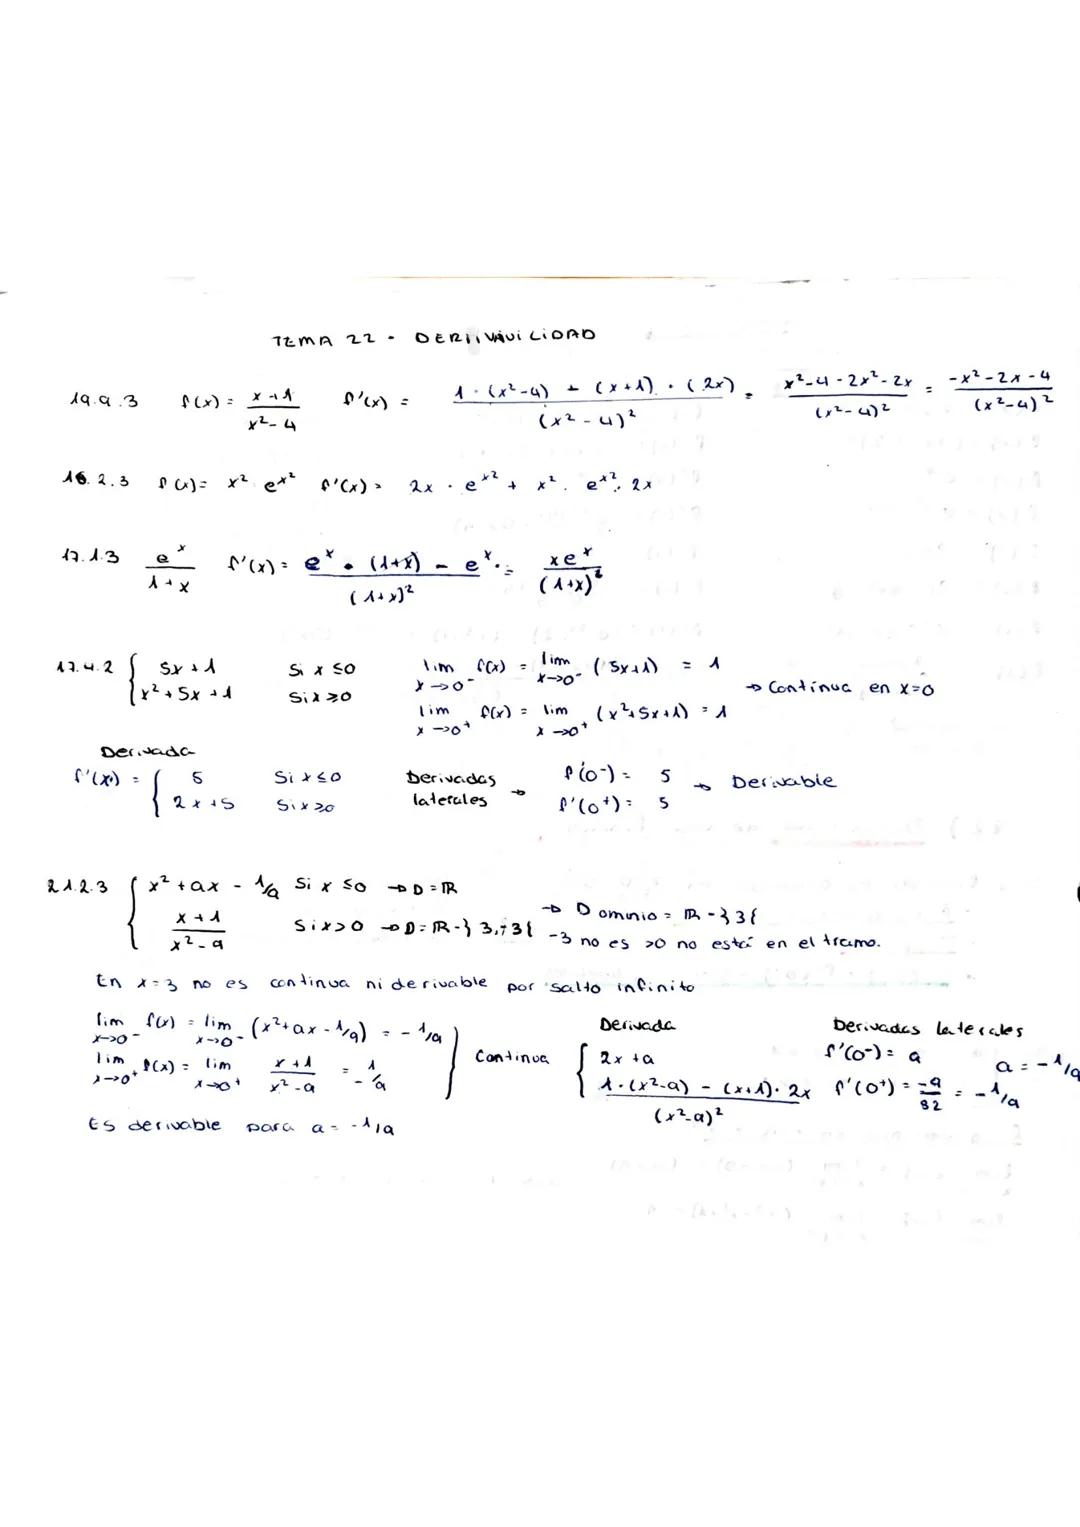 TEMA 22 - DERIIVAVILIDAD
19.9.3 f(x) = (x+1)/(x²-4) f'(x) = (1·(x²-4) - (x+1)·(2x))/(x²-4)² = (x²-4-2x²-2x)/(x²-4)² = (-x²-2x-4)/(x²-4)²
16.2.3 f(x) = x² · e^x² f'(x) = 2x · e^x² + x² · e^x² · 2x
17.1.3 e^x/(1+x) f'(x) = (e^x · (1+x) - e^x ·)/(1+x)² = xe^x/(1+x)²
17.4.2 { 5x+1 Si x ≤0 lim x→0⁻ f(x) = lim x→0⁻ (5x+1) = 1
x²+5x+1 Si x≥0 lim x→0⁺ f(x) = lim x→0⁺ (x²+5x+1) = 1 → Contínua en x=0
Derivada
f'(x) = { 5 Si x≤0 Derivadas laterales → f'(0⁻) = 5
2x+5 Si x≥0 f'(0⁺) = 5 → Derivable
21.2.3 { x²+ax - 1/9 Si x ≤0 → D = ℝ
(x+1)/(x²-9) Si x>0 → D = ℝ-} 3,-3{ → Dominio = ℝ-}3{
-3 no es >0 no está en el tramo.
En x=3 no es continua ni derivable por salto infinito
lim x→0⁻ f(x) = lim x→0⁻ (x²+ax-1/9) = -1/9
lim x→0⁺ f(x) = lim x→0⁺ (x+1)/(x²-9) = 1/-9 } Continua
Derivada
{ 2x+a
(1·(x²-9) - (x+1)·2x)/(x²-9)²
Derivadas laterales
f'(0⁻) = a
f'(0⁺) = -9/82 = -1/9
a = -1/9
Es derivable para a = -1/9